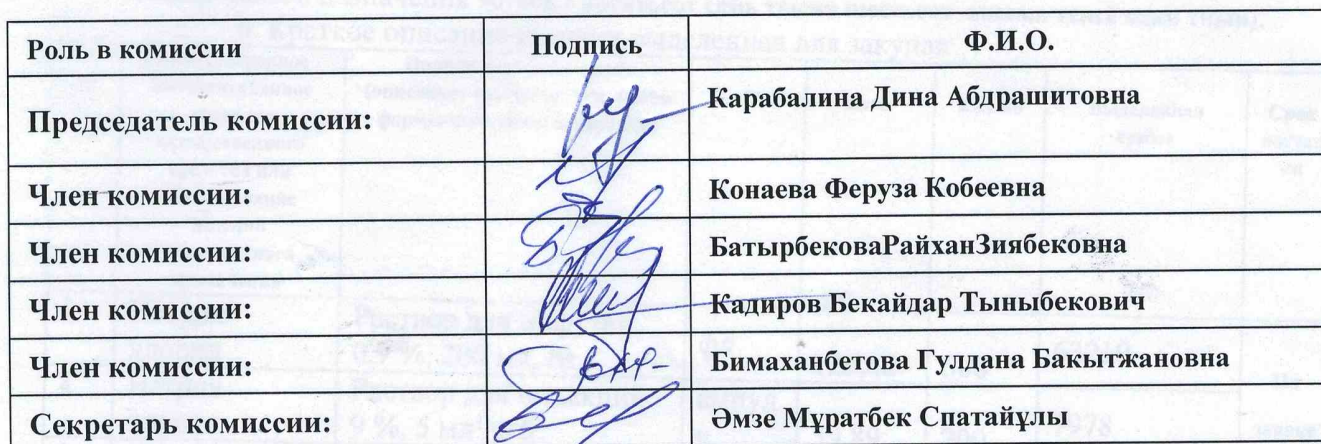 Роль в комиссии Подпись Ф.И.О.
Председатель комиссии: Карабалина Дина Абдрашитовна
Член комиссии: Конаева Феруза Кобеевна
Член комиссии: БатырбековаРайханЗиябековна
Член комиссии: Кадиров Бекайдар Тыныбекович
Член комиссии: Бимаханбетова Гулдана Бакытжановна
Секретарь комиссии: Әмзе Мұратбек Спатайұлы